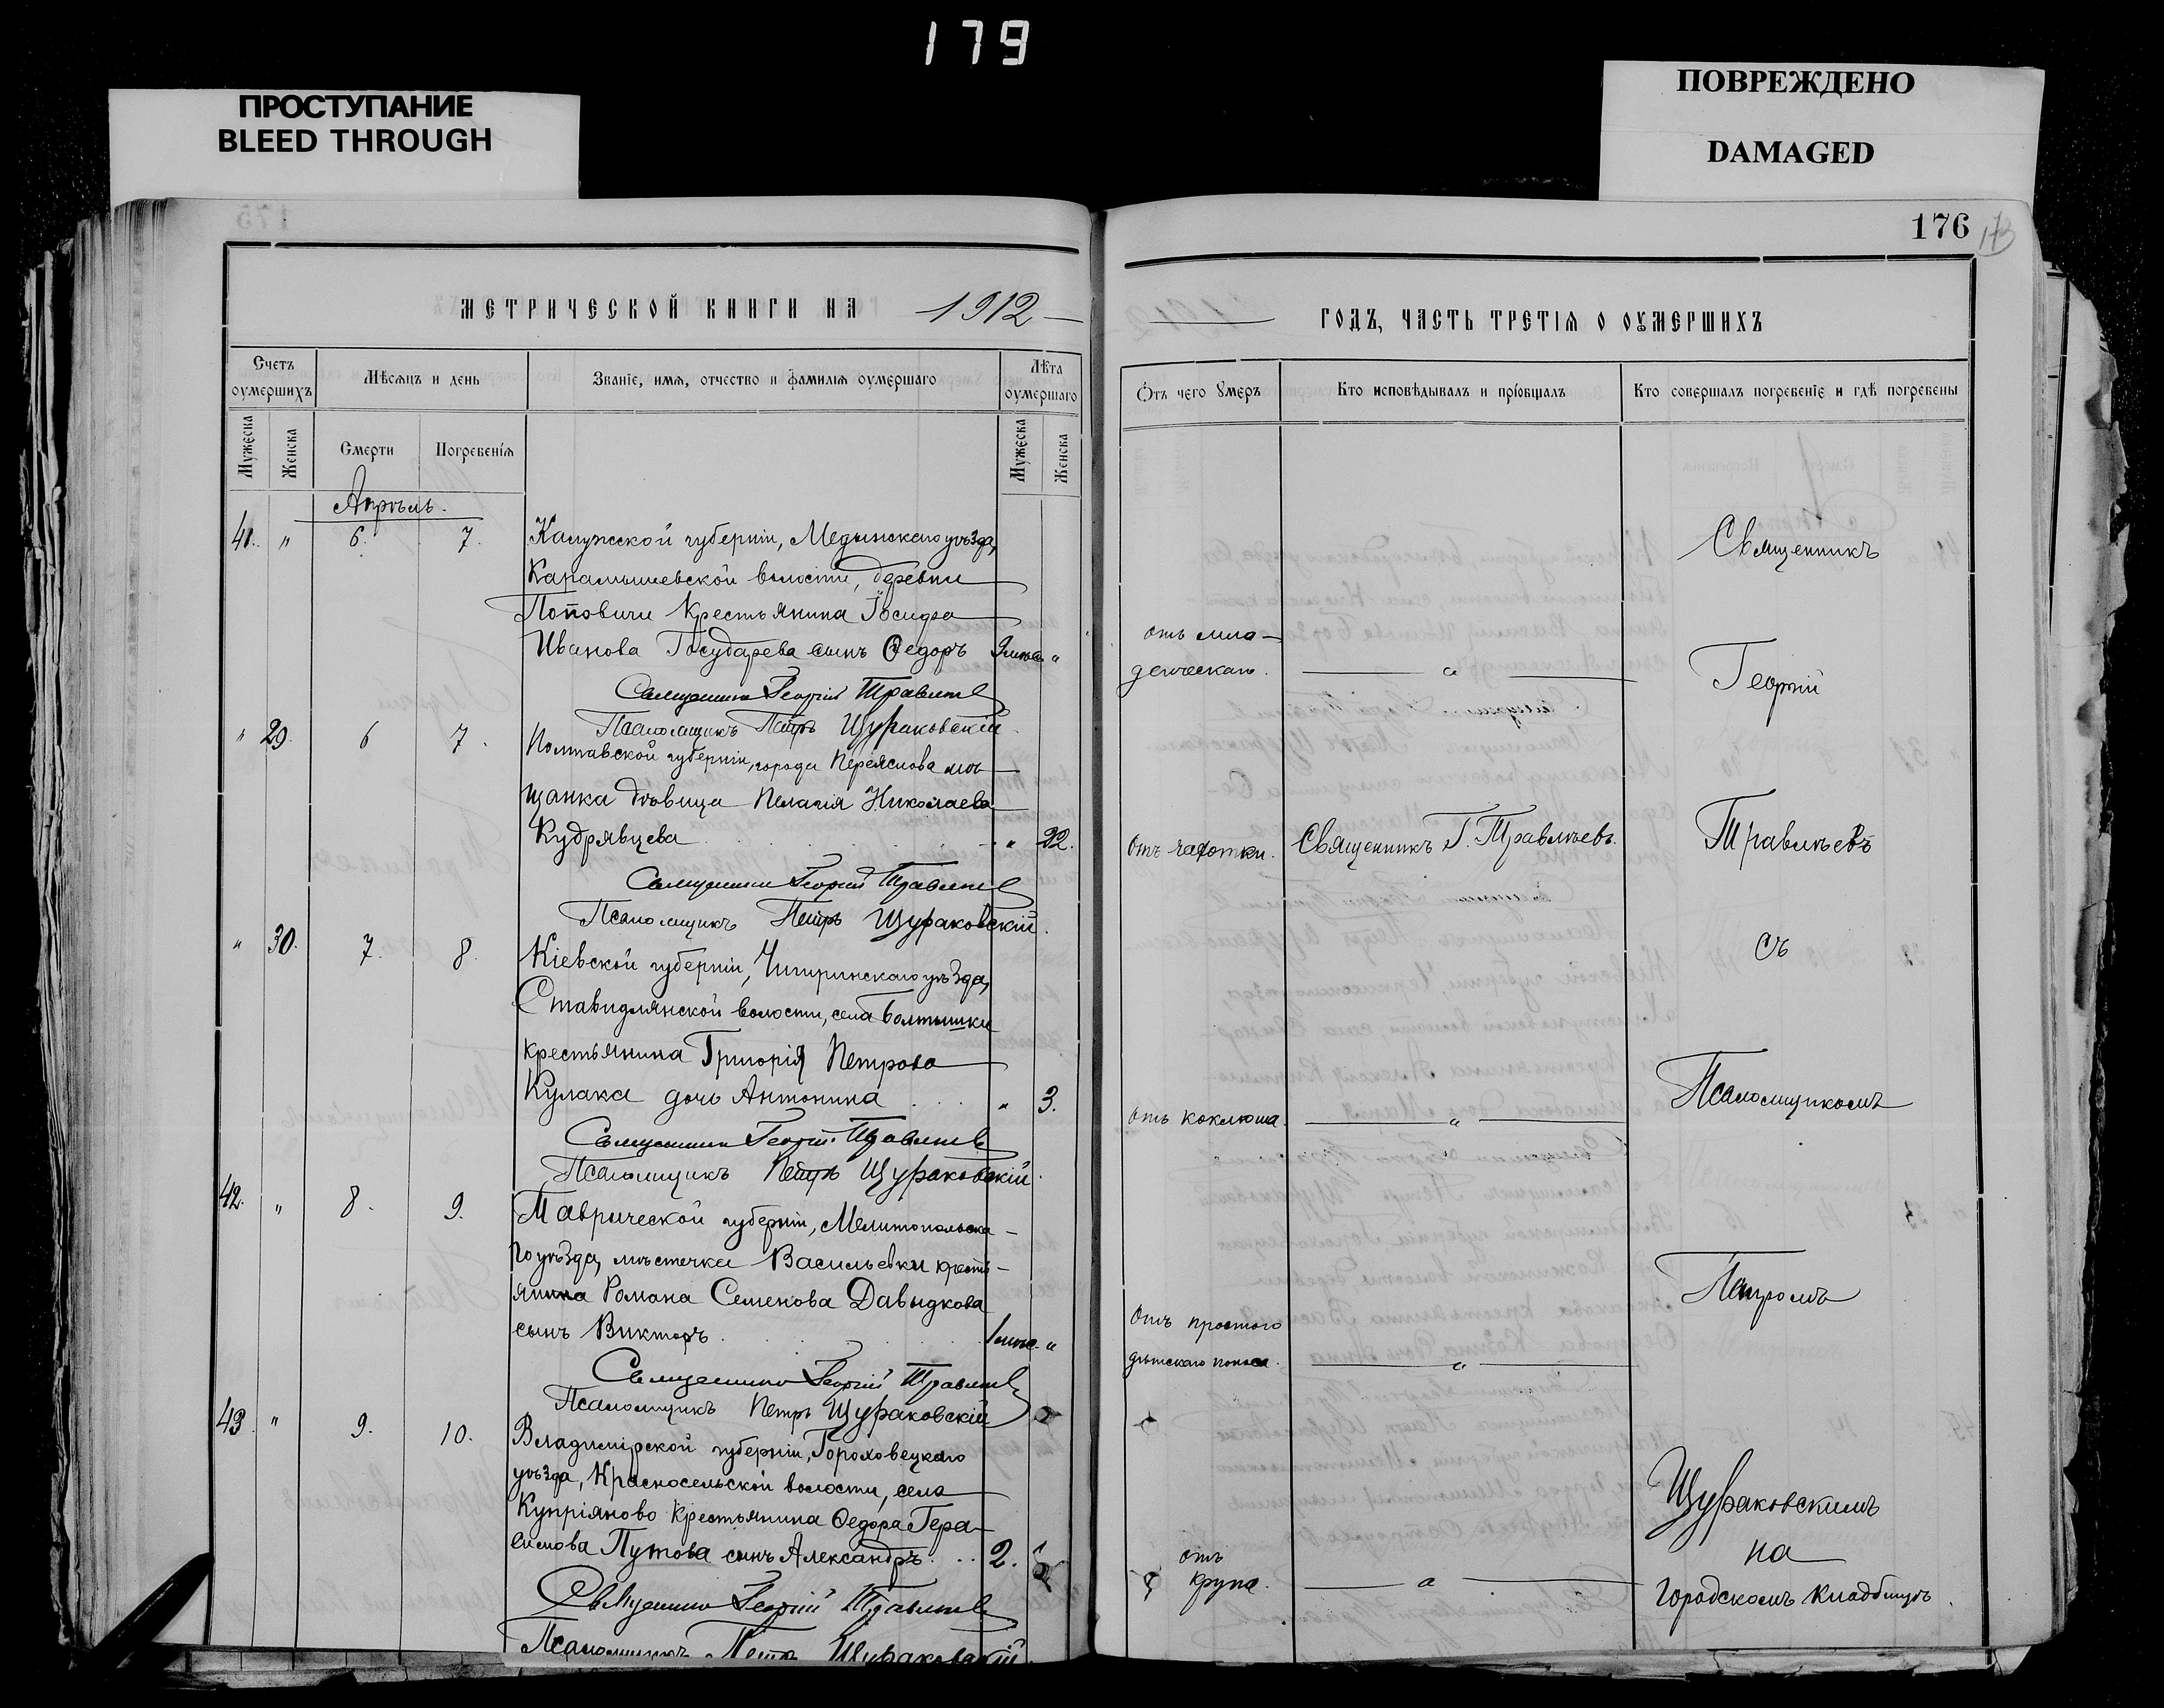 179
ПРОСТУПАНИЕ
BLEED THROUGH
ПОВРЕЖДЕНО
DAMAGED
МЕТРИЧЕСКОЙ КНИГИ НА 1912
Счетъ оумершихъ
Мѣсяцъ и день
Званіе, имя, отчество и фамилія оумершаго
Лѣта оумершаго
Мужеска
Женска
Смерти
Погребенія
Мужеска
Женска
Апрѣль.
41. " 6. 7. Калужской губерніи, Медынскаго уѣзда,
Карамышевской волости, деревни
Поповичи крестьянина Іосифа
Иванова Государева сынъ Ѳедоръ "
Священникъ Георгій Травлѣевъ
Псаломщикъ Петръ Щураковскій
" 29. 6 7. Полтавской губерніи, города Переяслова мѣ-
щанка дѣвица Пелагія Николаева
Кудрявцева " 32.
Священникъ Георгій Травлѣевъ
Псаломщикъ Петръ Щураковскій.
" 30. 7. 8. Кіевской губерніи, Чигиринскаго уѣзда,
Ставидлянской волости, села Болтышки
крестьянина Григорія Петрова
Кулака дочь Антонина " 3.
Священникъ Георгій Травлѣевъ
Псаломщикъ Петръ Щураковскій.
42. " 8. 9. Таврической губерніи, Мелитопольска-
го уѣзда, мѣстечка Васильевки кресть-
янина Романа Семенова Давыдкова
сынъ Викторъ 1 мѣс. "
Священникъ Георгій Травлѣевъ
Псаломщикъ Петръ Щураковскій
43. " 9. 10. Владимірской губерніи, Гороховецкаго
уѣзда, Красносельской волости, села
Купріяново крестьянина Ѳедора Гера-
симова Путова сынъ Александръ 2.
Священникъ Георгій Травлѣевъ
Псаломщикъ Петръ Щураковскій
176
ГОДЪ, ЧАСТЬ ТРЕТІЯ О ОУМЕРШИХЪ
Отъ чего умеръ
Кто исповѣдывалъ и пріобщалъ
Кто совершалъ погребеніе и гдѣ погребены
отъ мла-
денческаго. "
Отъ чахотки. Священникъ Г. Травлѣевъ.
Отъ коклюша. "
Отъ простого
дѣтскаго поноса. "
отъ
крупа. "
Священникъ
Георгій
Травлѣевъ
съ
Псаломщикомъ
Петромъ
Щураковскимъ
на
городскомъ кладбищѣ.